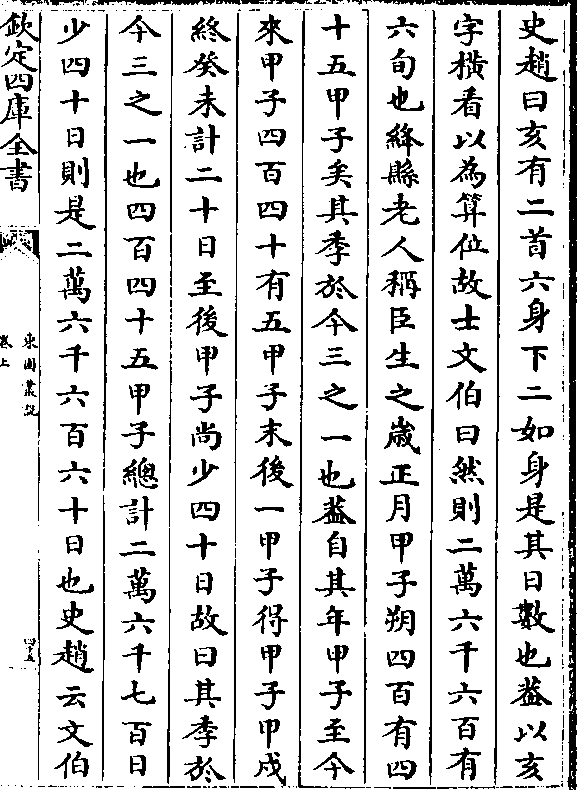 史趙曰亥有二首六身下二如身是其日數也葢以亥
字橫看以為算位故士文伯曰然則二萬六千六百有
六旬也絳縣老人稱臣生之嵗正月甲子朔四百有四
十五甲子矣其季於今三之一也葢自其年甲子至今
來甲子四百四十有五甲子末後一甲子得甲子甲戌
終癸未計二十日至後甲子尚少四十日故曰其季於
今三之一也四百四十五甲子總計二萬六千七百日
少四十日則是二萬六千六百六十日也史趙云文伯
欽定四庫全書
東園叢說
卷上